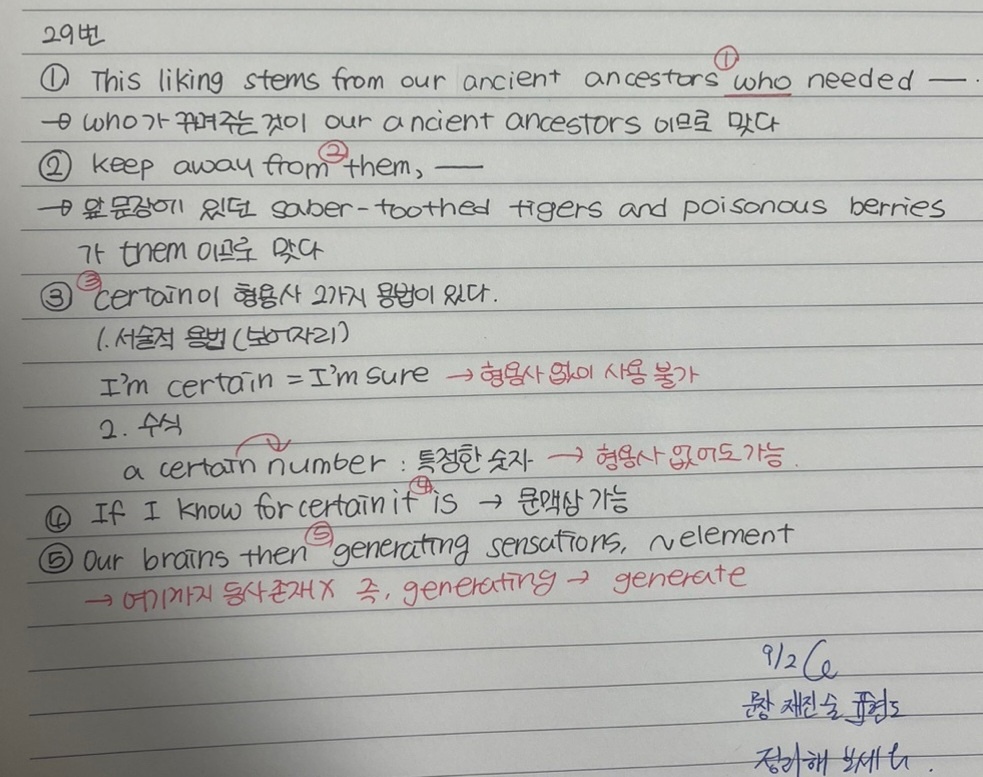 29번
① This liking stems from our ancient ancestors ① who needed — .
→ who가 꾸며주는 것이 our ancient ancestors 이므로 맞다
② keep away from ② them, —
→ 앞문장에 있던 saber-toothed tigers and poisonous berries
가 them 이므로 맞다
③ ③ certain이 형용사 2가지 용법이 있다.
1. 서술적 용법 (보어자리)
I'm certain = I'm sure → 형용사 없이 사용 불가
2. 수식
a certain number : 특정한 숫자 → 형용사 없어도 가능.
④ If I know for certain it ④ is → 문맥상 가능
⑤ Our brains then ⑤ generating sensations, ~element
→ 여기까지 동사존재X 즉, generating → generate
9/2
문장 재진술 표현도
정리해 보세요.